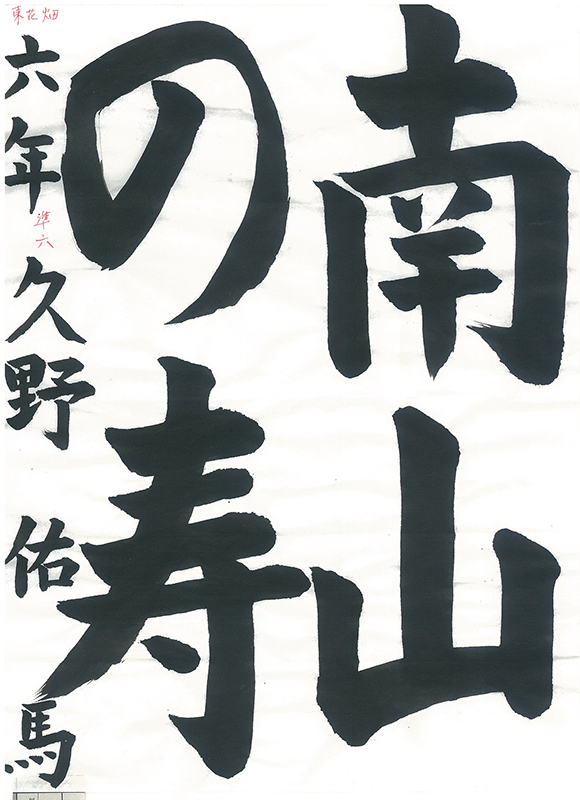 南山
の寿
六年 久野 佑馬
東花畑
準六